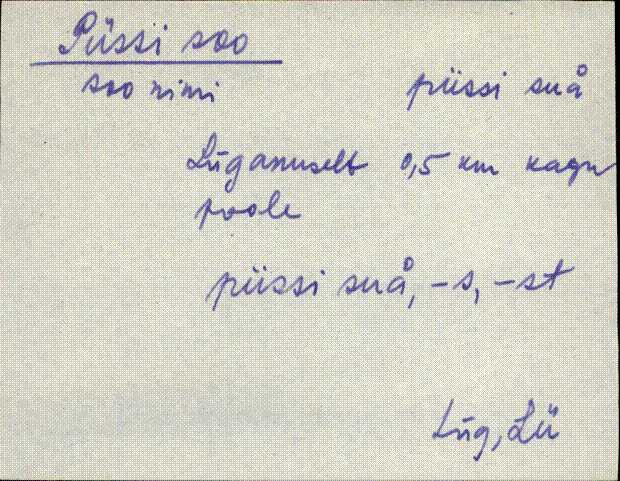 Püssi soo
soo nimi püssi suå
Lüganuselt 0,5 km kagu
poole
püssi suå, -s, -st
Lüg, Lü